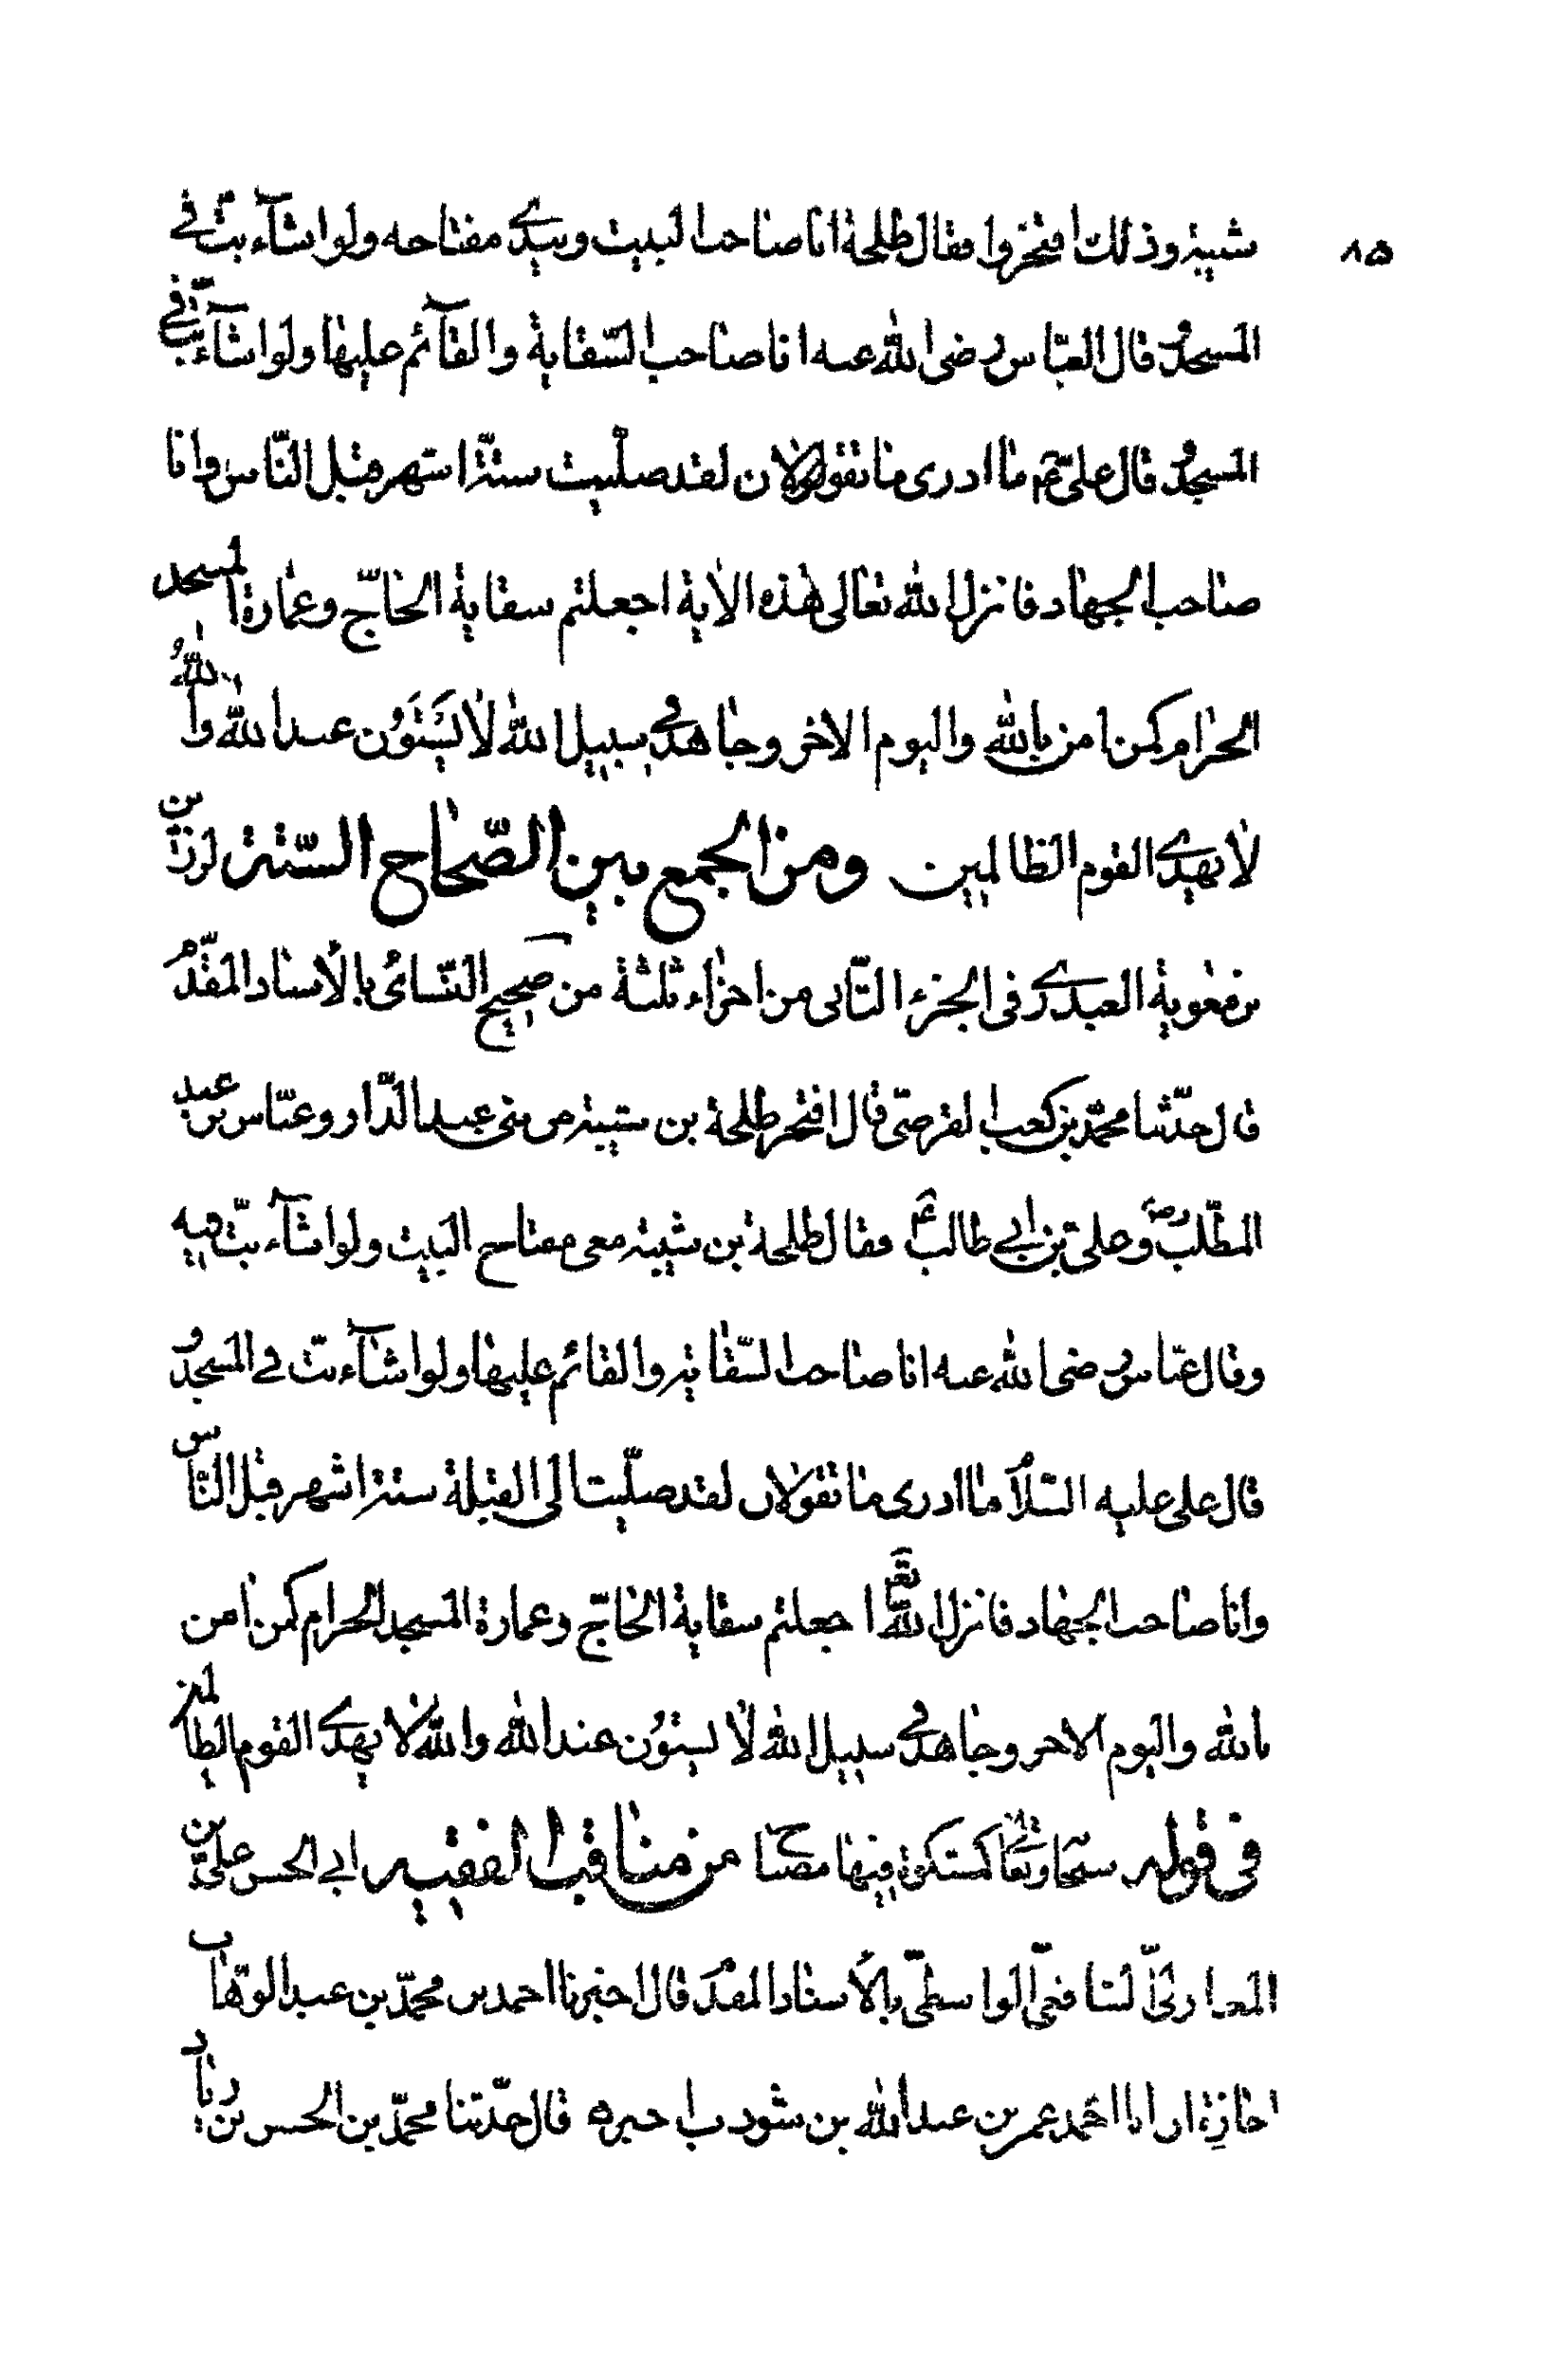 ٨٥
شيبة وذلك افتخروا فقال طلحة انا صاحب البيت وبيدي مفتاحه ولو اشآء بتّ في
المسجد وقال العبّاس رضى اللّٰه عنه انا صاحب السّقاية والقآئم عليها ولو اشآء بتّ في
المسجد وقال علىّ عم ما ادرى ما تقولان لقد صلّيت ستّة اشهر قبل النّاس وانا
صاحب الجهاد فانزل اللّٰه تعالى هٰذه الاٰية اجعلتم سقاية الحاجّ وعمارة المسجد
الحرام كمن امن باللّٰه واليوم الاخر وجاهد في سبيل اللّٰه لا يَسْتَوُن عند اللّٰه واللّٰهُ
لا يهدي القوم الظالمين ومن الجمع بين الصّحاح الستّة لرزين
بن معوية العبدري فى الجزء الثّانى من اجزاء ثلثة من صحيح النّسائى بالأسناد المقدّم
قال حدّثنا محمّد بن كعب القرضىّ قال افتخر طلحة بن شيبة من بنى عبد الدّار وعبّاس بن عبد
المطّلب رض وعلىّ بن ابي طالب ع فقال طلحة بن شيبة معى مفتاح البيت ولو اشآء بتّ فيه
وقال عبّاس رضى اللّٰه عنه انا صاحب السّقاية والقائم عليها ولو اشآء بتّ في المسجد و
قال على عليه السّلام ما ادرى ما تقولان لقد صلّيت الى القبلة ستّة اشهر قبل النّاس
وانا صاحب الجهاد فانزل اللّٰه تع اجعلتم سقاية الحاجّ وعمارة المسجد الحرام كمن امن
باللّٰه واليوم الاخر وجاهد في سبيل اللّٰه لا يستوُن عند اللّٰه واللّٰه لا يهدى القوم الظالمين
فى قوله سبحا وتعا كمشكوة فيها مصباح من مناقب الفقيه ابي الحسن علىّ بن
المغازلىّ الشافعىّ الواسطىّ بالأسناد المقدم قال اخبرنا احمد بن محمّد بن عبد الوهّاب
اجازة ان ابا احمد عمر بن عبد اللّٰه بن شوذب اخبره قال حدّثنا محمّد بن الحسن بن زياد